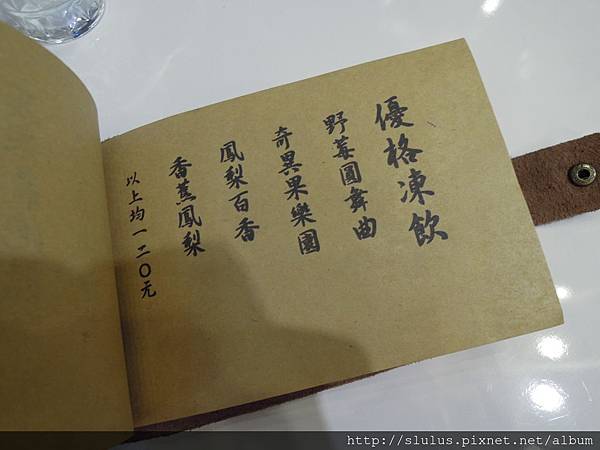 優格凍飲
野莓圓舞曲
奇異果樂園
鳳梨百香
香蕉鳳梨
以上均一二〇元
http://slulus.pixnet.net/album